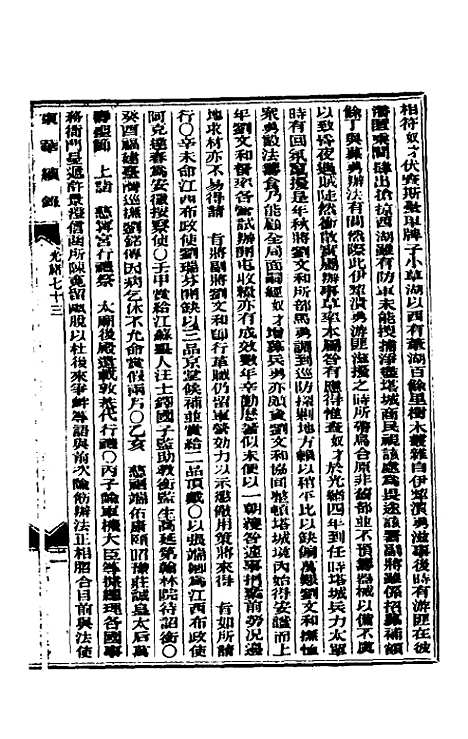 相符奴才伏查斯數里牌子小草湖以西有葦湖百餘里樹木叢雜自伊犂潰勇滋事後時有游匪在彼
潛匿乘間僅出搶掠西湖雖有防軍未能搜捕淨盡塔城商民視該處為畏途該署副將雖係招募補額
餘丁與募勇辦法有間然際此伊犂潰勇游匪滋擾之時所帶烏合原非舊部並不預籌器械以備不虞
以致昏夜遇賊陡然衝散實屬辦事草率本屬咎有應得惟查奴才於光緒四年到任時塔城兵力太單
時有回氛竄擾是年秋將劉文和所部馬勇調到巡防探剿地方賴以稍平比以缺餉萬艱劉文和撫恤
眾勇設法籌食乃能顧全局面嗣經奴才增募兵勇亦賴資劉文和協同整頓塔城境內始得安謐而上
年劉文和督率各營試辦開屯收糧亦有成效數年辛勤歷著似未便以一朝獲咎遽事捐棄前勞況邊
地求材亦不易得請 旨將副將劉文和即行革職仍留軍營效力以示懲儆用策將來得 旨如所請
行○辛未命江西布政使劉瑞芬開缺以三品京堂候補並賞給二品頂戴○以張端卿為江西布政使
阿克達春為安徽按察使○壬申賞給江蘇舉人汪士鐸國子監助教銜監生高延第翰林院待詔銜○
癸酉福建臺灣巡撫劉銘傳因病乞休不允命賞假兩月○乙亥 慈禧端佑康頤昭豫莊誠皇太后萬
壽聖節 上詣 慈寧宮行禮祭 太廟後殿遣載敦恭代行禮○丙子諭軍機大臣等據總理各國事
務衙門呈遞許景澄信函所陳竟留越股以杜後來爭衅等語與前次諭飭辦法正相脗合目前與法使
東華續錄
光緒七十三
十一